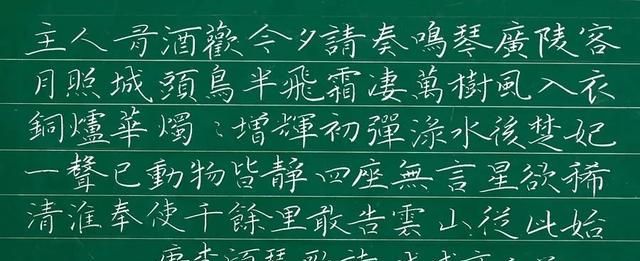 主人有酒歡今夕請奏鳴琴廣陵客
月照城頭鳥半飛霜凄萬樹風入衣
銅爐華燭〻增輝初彈淥水後楚妃
一聲已動物皆靜四座無言星欲稀
清淮奉使千餘里敢告雲山從此始
唐李頎琴歌詩